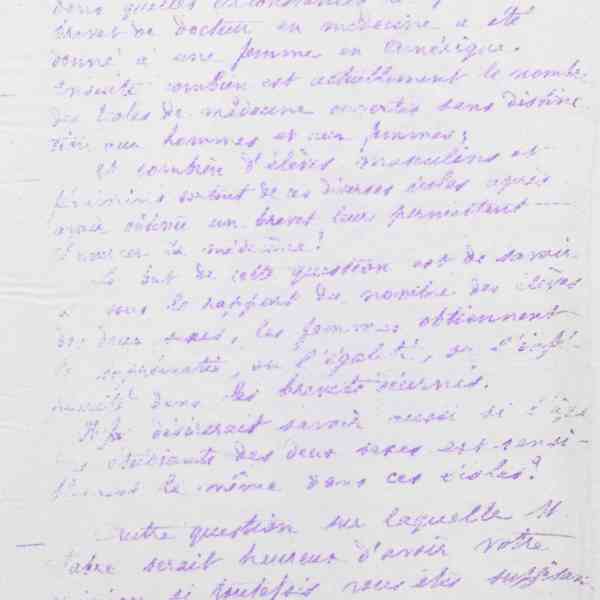 dans quelles circonstances le 1er
brevet de docteur en médecine a été
donné à une femme en Amérique.
Ensuite combien est actuellement le nombre
des Ecoles de médecine ouvertes sans distinc
tion aux hommes et aux femmes;
et combien d'élèves masculins et
féminins sortent de ces diverses écoles après
avoir obtenu un brevet leur permettant
d'exercer la médecine?
Le but de cette question est de savoir
si sous le rapport du nombre des élèves
des deux sexes, les femmes obtiennent
la supériorité, ou l'égalité, ou l'infé-
riorité dans les brevets décernés.
désirerait savoir aussi si l'âge
des étudiants des deux sexes est sensi-
blement le même dans ces écoles?
autre question sur laquelle M.
serait heureux d'avoir votre
si toutefois vous êtes suffisam